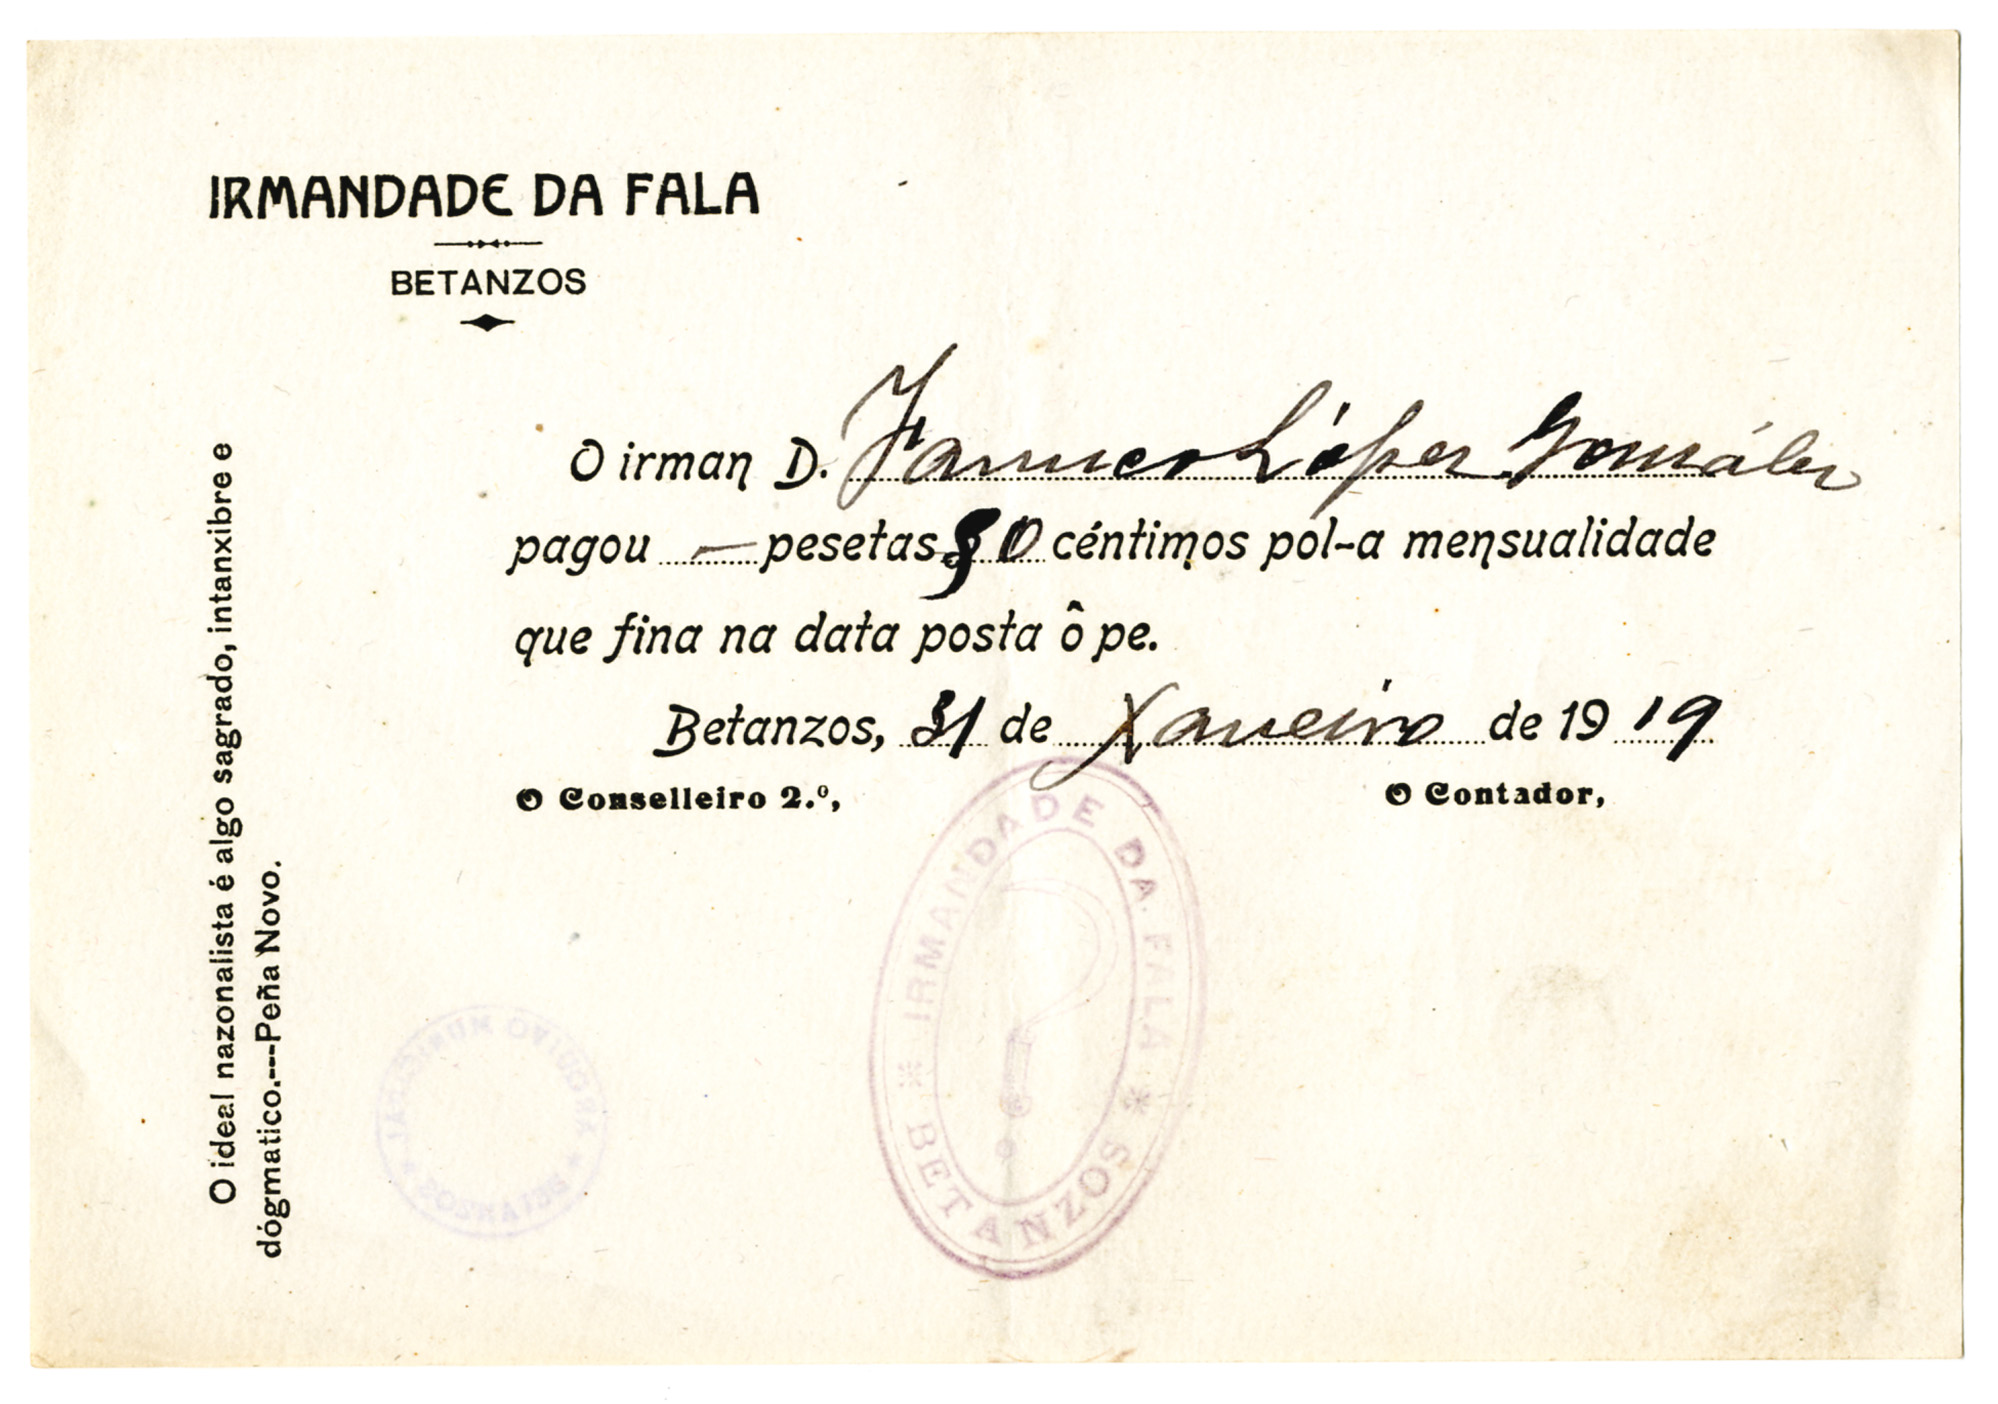 IRMANDADE DA FALA
BETANZOS
O irman D. Farruco López González
pagou — pesetas 50 céntimos pol-a mensualidade
que fina na data posta ô pe.
Betanzos, 31 de Xaneiro de 1919
O Conselleiro 2.º,
O Contador,
IRMANDADE DA FALA
* BETANZOS *
O ideal nazonalista é algo sagrado, intanxibre e
dógmatico.---Peña Novo.
ARQUIVO MUNICIPAL
* BETANZOS *